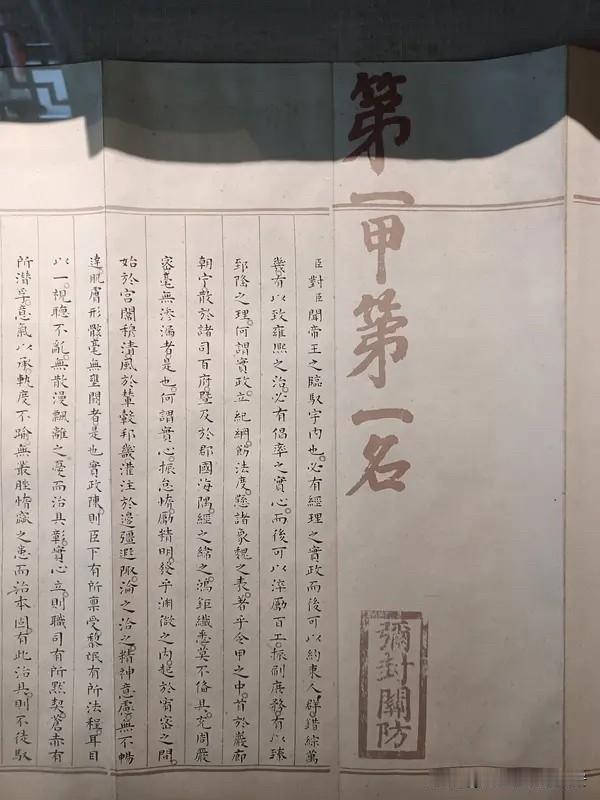 第一甲第一名
彌封關防
臣對臣聞帝王之臨馭宇內也。必有經理之實政而後可以約束人群。錯綜萬
幾。有以致雍熙之治。必有倡率之實心。而後可以淬勵百工。振刷庶務。有以臻
郅隆之理。何謂實政。立紀綱。飭法度。懸諸象魏之表。著乎令甲之中。首於巖廊
朝宁。散於諸司百府。暨及於郡國海隅。經之緯之。鴻鉅纖悉。莫不備具。充周嚴
密。毫無滲漏者是也。何謂實心。振怠惰。勵精明。發乎淵微之內。起於宥密之間。
始於宮闈穆清。風於輦轂邦畿。灌注於邊疆遐陬。淪之洽之。精神意慮。無不暢
達。肌膚形骸。毫無壅閼者是也。實政陳。則臣下有所稟受。黎氓有所法程。耳目
以一。視聽不亂。無散漫飄離之憂。而治具彰。實心立。則職司有所默契。蒼赤有
所潛孚。意氣以承。軌度不踰。無叢脞惰窳之患。而治本固。有此治具。則不徒馭